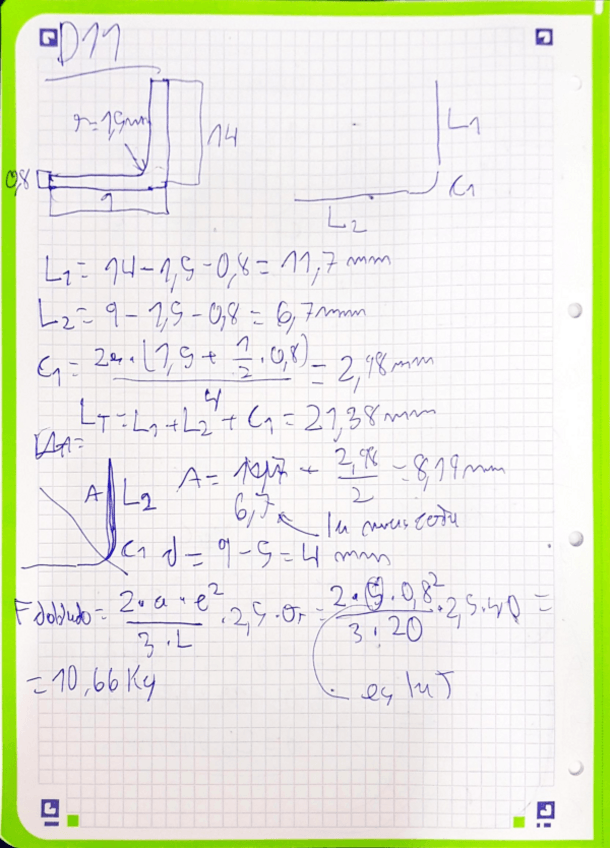 D11
r=1,5mm
14
0,8
9
L1
C1
L2
L1 = 14-1,5-0,8 = 11,7 mm
L2 = 9-1,5-0,8 = 6,7 mm
C1 = 2π·(1,5 + 1/2 · 0,8) / 4 = 2,98 mm
LT = L1 + L2 + C1 = 21,38 mm
A L2 A = 6,7 + 2,98/2 = 8,19 mm
C1 d = 9-5 = 4 mm
F doblado = 2·a·e² / 3·L · 2,5·σr = 2·5·0,8² / 3·20 · 2,5·40 =
= 10,66 Kg